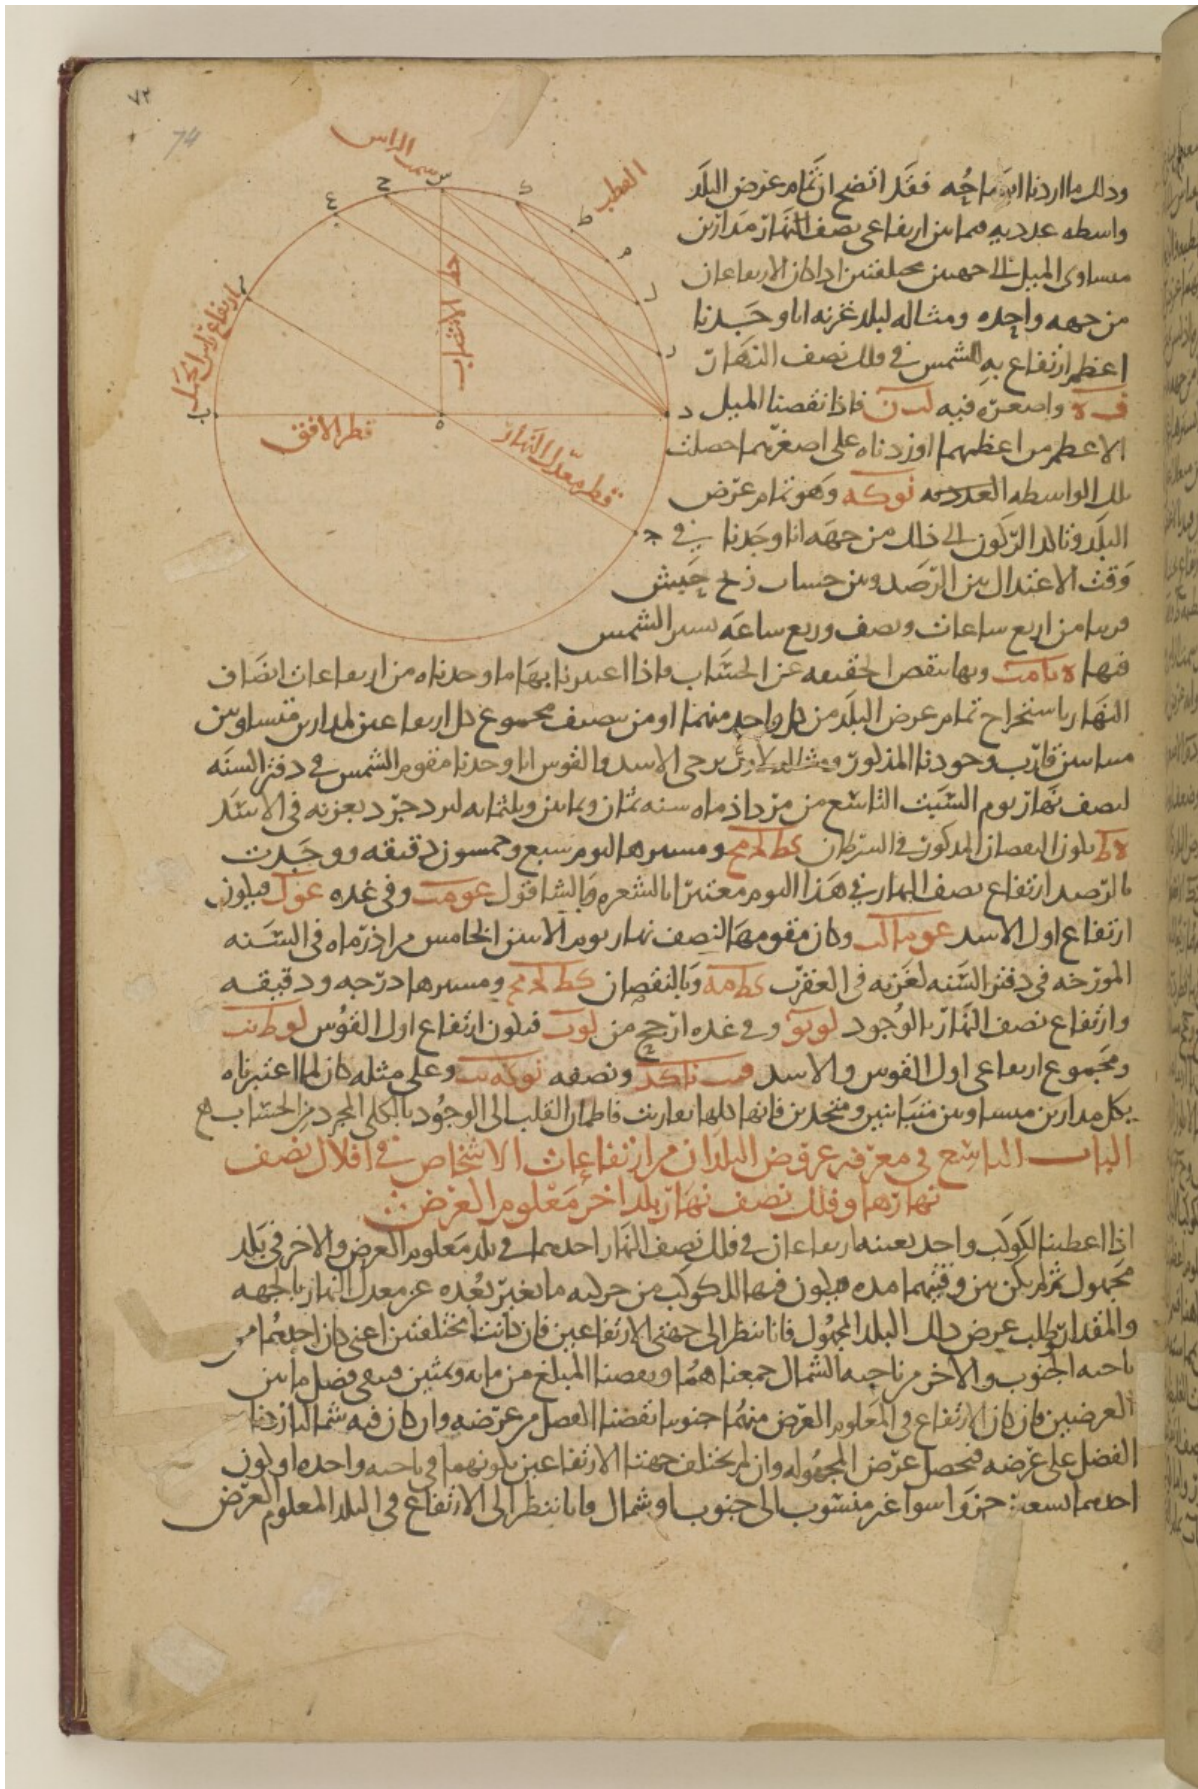 ٧٢
74
سمت الراس
القطب
ارتفاع راس الحمل
خط الانتصاب
قطر الافق
قطر معدل النهار
وذلك ما اردنا ايضاحه فقد اتضح ان تمام عرض البلد
واسطه عدديه فيما بين ارتفاعى نصف النهار مدارين
متساوى الميل الى جهتين مختلفتين اذا كان الارتفاعان
من جهه واحده ومثاله لبلد غزنه انا وجدنا
اعظم ارتفاع به للشمس فى فلك نصف النهار
ف ه واصغره فيه لب ن فاذا نقصنا الميل
الاعظم من اعظمهما او زدناه على اصغرهما حصلت
تلك الواسطه العدديه نو كه وهو تمام عرض
البلد وتاكد الركون الى ذلك من جهه انا وجدنا فى
وقت الاعتدال بين الرصد وبين حساب زيج حبش
قريبا من اربع ساعات ونصف وربع ساعه مسير الشمس
فيها وبها ينقص الحقيقه عن الحساب فاذا اعتبرنا بها ما وجدناه من ارتفاعات انصاف
النهار باستخراج تمام عرض البلد من كل واحد منهما او من نصف مجموع كل ارتفاعين لمدارين متساويين
متباينين قارب وجودنا المذكور برجى الاسد والقوس انا وجدنا مقوم الشمس فى دفتر السنه
لنصف نهار يوم السبت التاسع من مرداذ ماه سنه ثمان وثمانين وثلثمايه ليزدجرد بغزنه فى الاسد
يكون بالنقصان المذكور فى السرطان كط ومسيرها اليوم سبع وخمسون دقيقه ووجدت
بالرصد ارتفاع نصف النهار فى هذا اليوم معتبرا بالشعره وبالشاقول عو مت وفى غده عو ل فيكون
ارتفاع اول الاسد وكان مقومها لنصف نهار يوم الاثنين الخامس من اذر ماه فى السنه
المورخه فى دفتر السنه لغزنه فى العقرب كط مه وبالنقصان كط ومسيرها درجه ودقيقه
وارتفاع نصف النهار بالوجود وفى غده ارجح من فيكون ارتفاع اول القوس
ومجموع ارتفاعى اول القوس والاسد ونصفه نو كه وعلى مثله كان لما اعتبرناه
بكل مدارين متساويين متباينين ومتحدين فانها كلها تعاونت فاطمان القلب الى الوجود بالكلى المجرد من الحساب
الباب التاسع فى معرفه عروض البلدان من ارتفاعات الاشخاص فى افلاك نصف
نهارها وفلك نصف نهار بلد اخر معلوم العرض
اذا اعطينا لكوكب واحد بعينه ارتفاعان فى فلك نصف النهار احدهما فى بلد معلوم العرض والاخر فى بلد
مجهول ثم لم يكن بين وقتيهما مده يكون فيها للكوكب من حركته ما يغير بعده عن معدل النهار بالجهه
والمقدار وطلب عرض ذلك البلد المجهول فانا ننظر الى جهتى الارتفاعين فان كانتا مختلفتين اعنى كان احدهما من
ناحيه الجنوب والاخر من ناحيه الشمال جمعناهما ونقصنا المبلغ من مايه وثمنين فيبقى فضل ما بين
العرضين فان كان الارتفاع فى المعلوم العرض منهما جنوبيا نقصنا الفضل من عرضه وان كان فيه شماليا زدنا
الفضل على عرضه فيحصل عرض المجهوله وان لم يختلف جهتا الارتفاعين بكونهما فى ناحيه واحده او كون
احدهما تسعين جزوا سواء غير منسوب الى جنوب او شمال فانا ننظر الى الارتفاع فى البلد المعلوم العرض